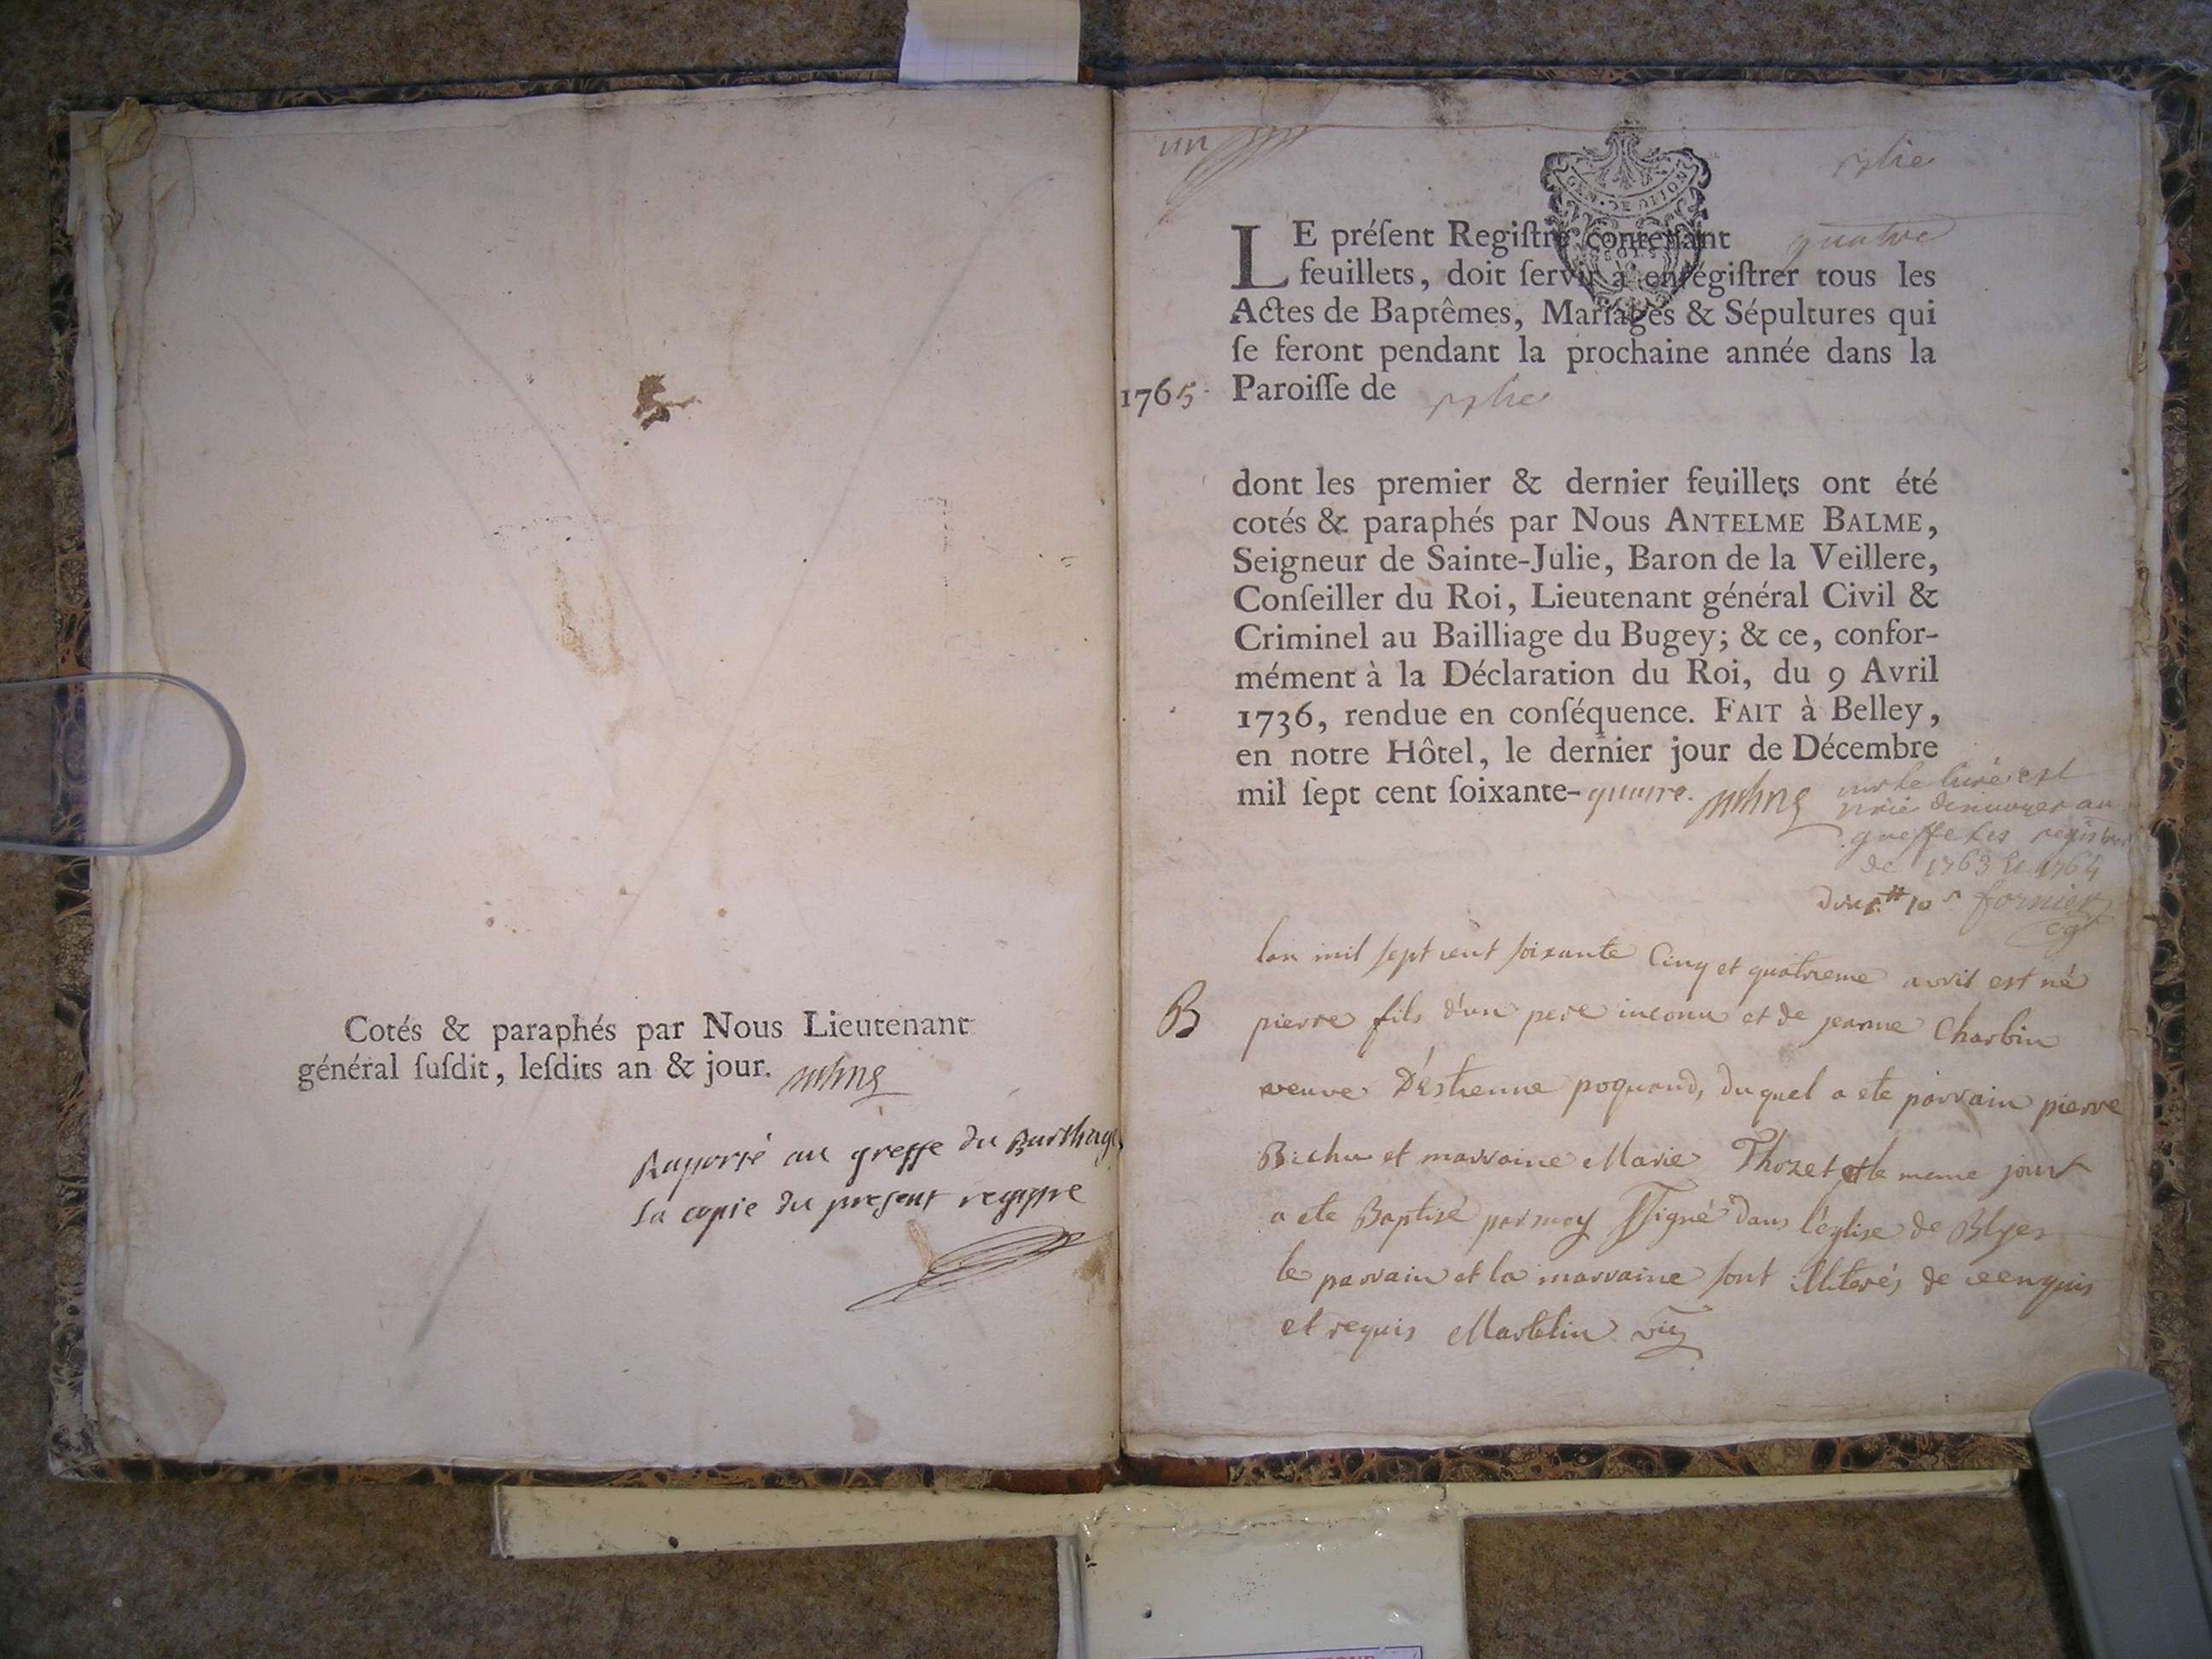 Cotés & paraphés par Nous Lieutenant
général ſuſdit, leſdits an & jour.
Raporté au greffe du
la copie du present regiſtre
un
GEN. DE DIJON
LE préſent Regiſtre contenant quatre
feuillets, doit ſervir à enrégiſtrer tous les
Actes de Baptêmes, Mariages & Sépultures qui
ſe feront pendant la prochaine année dans la
1765 Paroiſſe de
dont les premier & dernier feuillets ont été
cotés & paraphés par Nous ANTELME BALME,
Seigneur de Sainte-Julie, Baron de la Veillere,
Conſeiller du Roi, Lieutenant général Civil &
Criminel au Bailliage du Bugey; & ce, confor-
mément à la Déclaration du Roi, du 9 Avril
1736, rendue en conſéquence. FAIT à Belley,
en notre Hôtel, le dernier jour de Décembre
mil ſept cent ſoixante-quatre.
le curé est
prié denvoyer au
greffe les registres
de 1763 et 1764
fornier
lan mil sept cent soixante Cinq et quatrieme avril est né
B pierre fils d'un pere inconu et de jeanne Charbin
veuve D'éstienne poquand, duquel a ete parrain pierre
Bichu et marraine Marie Thozet et le meme jour
a ete Baptisé par moy Sigñé dans l'église de Blyes
le parrain et la marraine sont illiterés de ce enquis
et requis Martelin vic